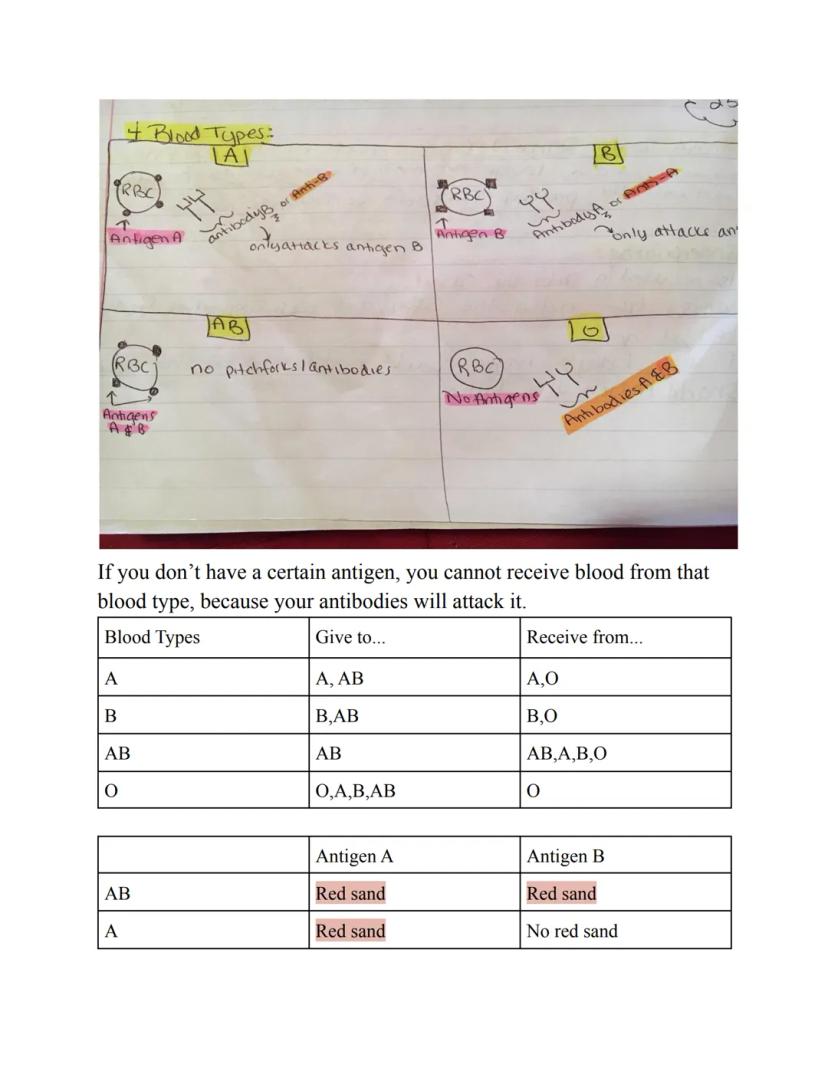 25
4 Blood Types:
A
B
RBC
Antigen A
antibody B or Anti-B
only attacks antigen B
RBC
Antigen B
Antibody A or Anti-A
only attacks
AB
O
RBC
no pitchforks/antibodies
Antigens
A & B
RBC
No Antigens
Antibodies A & B
If you don't have a certain antigen, you cannot receive blood from that
blood type, because your antibodies will attack it.
Blood Types Give to... Receive from...
A A, AB A,O
B B,AB B,O
AB AB AB,A,B,O
O O,A,B,AB O
Antigen A Antigen B
AB Red sand Red sand
A Red sand No red sand